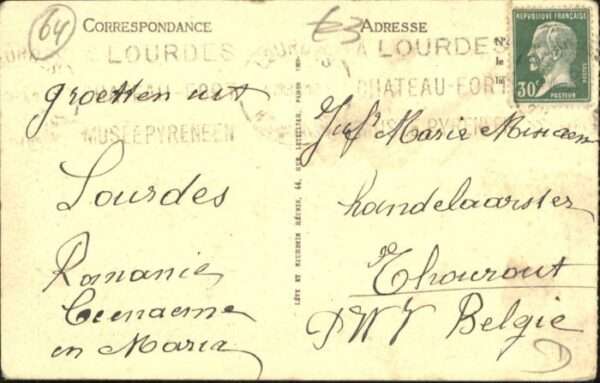 64
CORRESPONDANCE
63
ADRESSE
LOURDES
CHATEAU-FORT
MUSÉE PYRÉNÉEN
A LOURDES
CHATEAU-FORT
RÉPUBLIQUE FRANÇAISE
30c
POSTES
PASTEUR
groetten uit
Lourdes
Romanie
en Maria
LÉVY ET NEURDEIN RÉUNIS, 44, RUE LETELLIER, PARIS
Jufr Marie
handelaarster
Thourout
Belgie